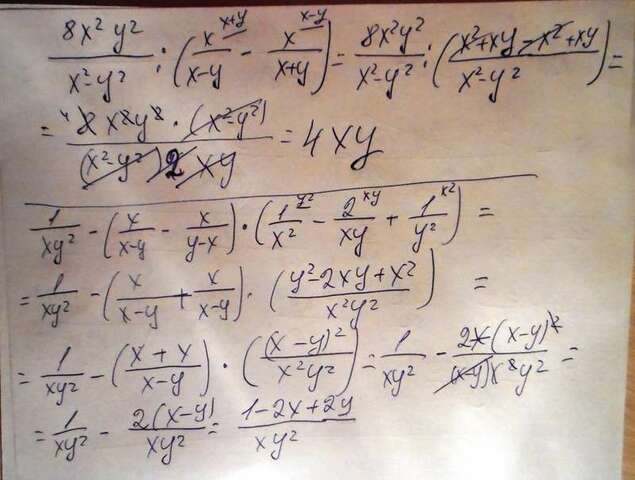 8x² y² / x²-y² : (x^(x+y) / x-y - x^(x-y) / x+y) = 8x²y² / x²-y² : (x²+xy-x²+xy / x²-y²) =
= ⁴8x²y² · (x²-y²) / (x²-y²) 2xy = 4xy
1 / xy² - (x / x-y - x / y-x) · (1^(y²) / x² - 2^(xy) / xy + 1^(x²) / y²) =
= 1 / xy² - (x / x-y + x / x-y) · (y²-2xy+x² / x²y²) =
= 1 / xy² - (x+x / x-y) · ((x-y)² / x²y²) = 1 / xy² - 2x(x-y)² / (x-y)x²y² =
= 1 / xy² - 2(x-y) / xy² = 1-2x+2y / xy²